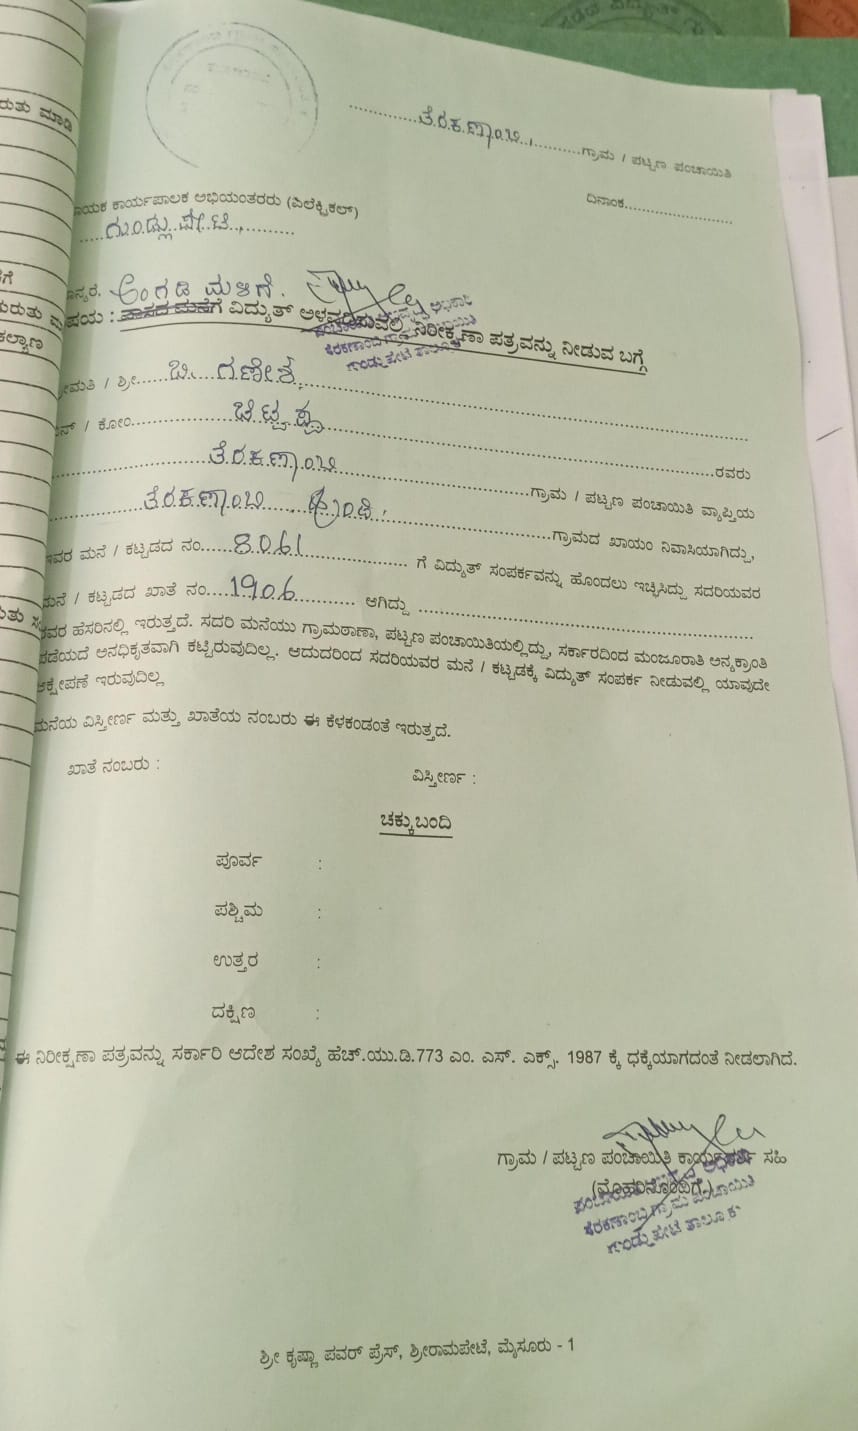 ತೆರಕಣಾಂಬಿ, ಗ್ರಾಮ / ಪಟ್ಟಣ ಪಂಚಾಯಿತಿ
ದಿನಾಂಕ
ಕಾರ್ಯಪಾಲಕ ಅಭಿಯಂತರರು (ಎಲೆಕ್ಟ್ರಿಕಲ್)
ಗುಂಡ್ಲುಪೇಟೆ,
ಅಂಗಡಿ ಮಳಿಗೆ.
ವಾಸದ ಮನೆಗೆ ವಿದ್ಯುತ್ ಅಳವಡಿಸುವಲ್ಲಿ ನಿರೀಕ್ಷಣಾ ಪತ್ರವನ್ನು ನೀಡುವ ಬಗ್ಗೆ
ಶ್ರೀ ಬಿ. ಗಣೇಶ,
/ ಕೋಂ ಚಿಟ್ಟಪ್ಪ
ರವರು
ತೆರಕಣಾಂಬಿ ಗ್ರಾಮ / ಪಟ್ಟಣ ಪಂಚಾಯಿತಿ ವ್ಯಾಪ್ತಿಯ
ತೆರಕಣಾಂಬಿ ಗ್ರಾಮದ ಖಾಯಂ ನಿವಾಸಿಯಾಗಿದ್ದು,
ಇವರ ಮನೆ / ಕಟ್ಟಡದ ನಂ. 8061 ಗೆ ವಿದ್ಯುತ್ ಸಂಪರ್ಕವನ್ನು ಹೊಂದಲು ಇಚ್ಛಿಸಿದ್ದು ಸದರಿಯವರ
ಮನೆ / ಕಟ್ಟಡದ ಖಾತೆ ನಂ. 1906 ಆಗಿದ್ದು
ಹೆಸರಿನಲ್ಲಿ ಇರುತ್ತದೆ. ಸದರಿ ಮನೆಯು ಗ್ರಾಮಠಾಣಾ, ಪಟ್ಟಣ ಪಂಚಾಯಿತಿಯಲ್ಲಿದ್ದು, ಸರ್ಕಾರದಿಂದ ಮಂಜೂರಾತಿ ಅನ್ಯಕ್ರಾಂತಿ
ಪಡೆಯದೆ ಅನಧಿಕೃತವಾಗಿ ಕಟ್ಟಿರುವುದಿಲ್ಲ. ಆದುದರಿಂದ ಸದರಿಯವರ ಮನೆ / ಕಟ್ಟಡಕ್ಕೆ ವಿದ್ಯುತ್ ಸಂಪರ್ಕ ನೀಡುವಲ್ಲಿ ಯಾವುದೇ
ಆಕ್ಷೇಪಣೆ ಇರುವುದಿಲ್ಲ
ಮನೆಯ ವಿಸ್ತೀರ್ಣ ಮತ್ತು ಖಾತೆಯ ನಂಬರು ಈ ಕೆಳಕಂಡಂತೆ ಇರುತ್ತದೆ.
ಖಾತೆ ನಂಬರು : ವಿಸ್ತೀರ್ಣ :
ಚಕ್ಕುಬಂದಿ
ಪೂರ್ವ :
ಪಶ್ಚಿಮ :
ಉತ್ತರ :
ದಕ್ಷಿಣ :
ಈ ನಿರೀಕ್ಷಣಾ ಪತ್ರವನ್ನು ಸರ್ಕಾರಿ ಆದೇಶ ಸಂಖ್ಯೆ ಹೆಚ್.ಯು.ಡಿ.773 ಎಂ. ಎಸ್. ಎಕ್ಸ್. 1987 ಕ್ಕೆ ಧಕ್ಕೆಯಾಗದಂತೆ ನೀಡಲಾಗಿದೆ.
ಗ್ರಾಮ / ಪಟ್ಟಣ ಪಂಚಾಯಿತಿ ಕಾರ್ಯದರ್ಶಿ ಸಹಿ
(ಮೊಹರಿನೊಂದಿಗೆ)
ತೆರಕಣಾಂಬಿ ಗ್ರಾಮ ಪಂಚಾಯಿತಿ
ಗುಂಡ್ಲುಪೇಟೆ ತಾಲ್ಲೂಕು
ಶ್ರೀ ಕೃಷ್ಣಾ ಪವರ್ ಪ್ರೆಸ್, ಶ್ರೀರಾಮಪೇಟೆ, ಮೈಸೂರು - 1